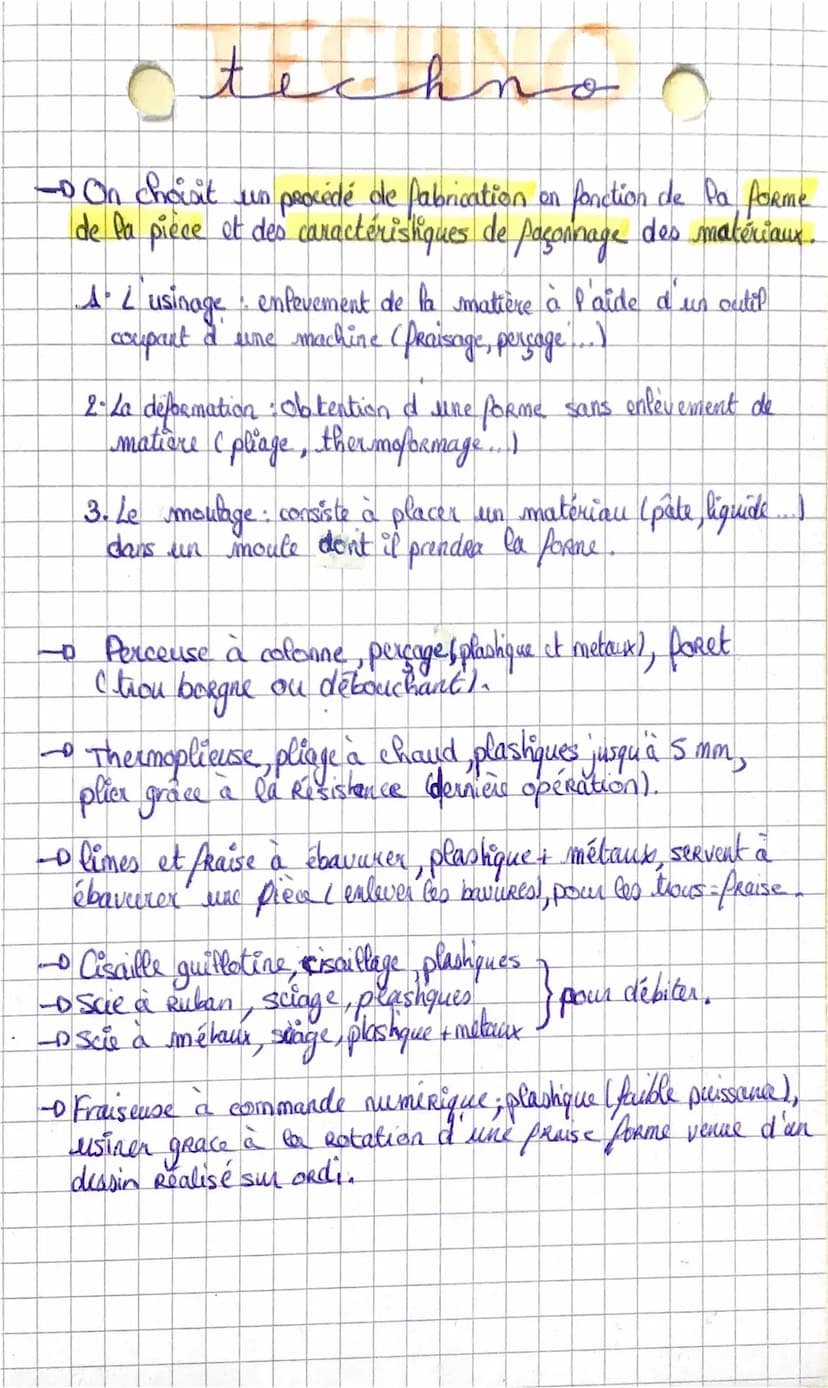 TECHNO
techno
→ On choisit un procédé de fabrication en fonction de la forme
de la pièce et des caractéristiques de façonnage des matériaux.
1. L'usinage : enlevement de la matière à l'aide d'un outil
coupant d'une machine (fraisage, perçage...)
2. La déformation : obtention d'une forme sans enlèvement de
matière (pliage, thermoformage...)
3. Le moulage : consiste à placer un matériau (pâte, liquide...)
dans un moule dont il prendra la forme.
→ Perceuse à colonne, perçage (plastique et metaux), foret
(trou borgne ou débouchant).
→ Thermoplieuse, pliage à chaud, plastiques jusqu'à 5 mm,
plier grâce à la résistance (dernière opération).
→ limes et fraise à ébavurer, plastique + métaux, servent à
ébavurer une pièce (enlever les bavures), pour les trous = fraise.
→ Cisaille guillotine, cisaillage, plastiques
→ Scie à ruban, sciage, plastiques } pour débiter.
→ Scie à métaux, sciage, plastique + metaux
→ Fraiseuse à commande numérique ; plastique (faible puissance),
usiner grace à la rotation d'une fraise forme venue d'un
dessin réalisé sur ordi.